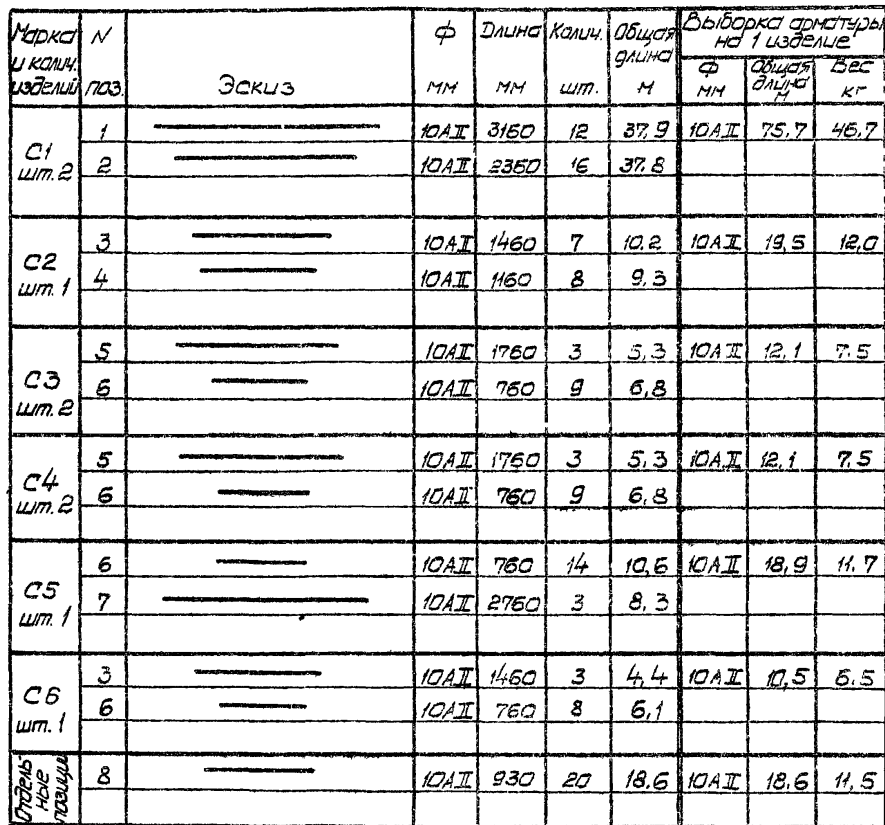 Марка и колич. изделий N поз. Эскиз Ф мм Длина мм Колич. шт. Общая длина м Выборка арматуры на 1 изделие
Ф мм Общая длина м Вес кг
С1 шт. 2 1 10АII 3160 12 37,9 10АII 75,7 46,7
2 10АII 2360 16 37,8
С2 шт. 1 3 10АII 1460 7 10,2 10АII 19,5 12,0
4 10АII 1160 8 9,3
С3 шт. 2 5 10АII 1760 3 5,3 10АII 12,1 7,5
6 10АII 760 9 6,8
С4 шт. 2 5 10АII 1760 3 5,3 10АII 12,1 7,5
6 10АII 760 9 6,8
С5 шт. 1 6 10АII 760 14 10,6 10АII 18,9 11,7
7 10АII 2760 3 8,3
С6 шт. 1 3 10АII 1460 3 4,4 10АII 10,5 6,5
6 10АII 760 8 6,1
Отдельные позиции 8 10АII 930 20 18,6 10АII 18,6 11,5